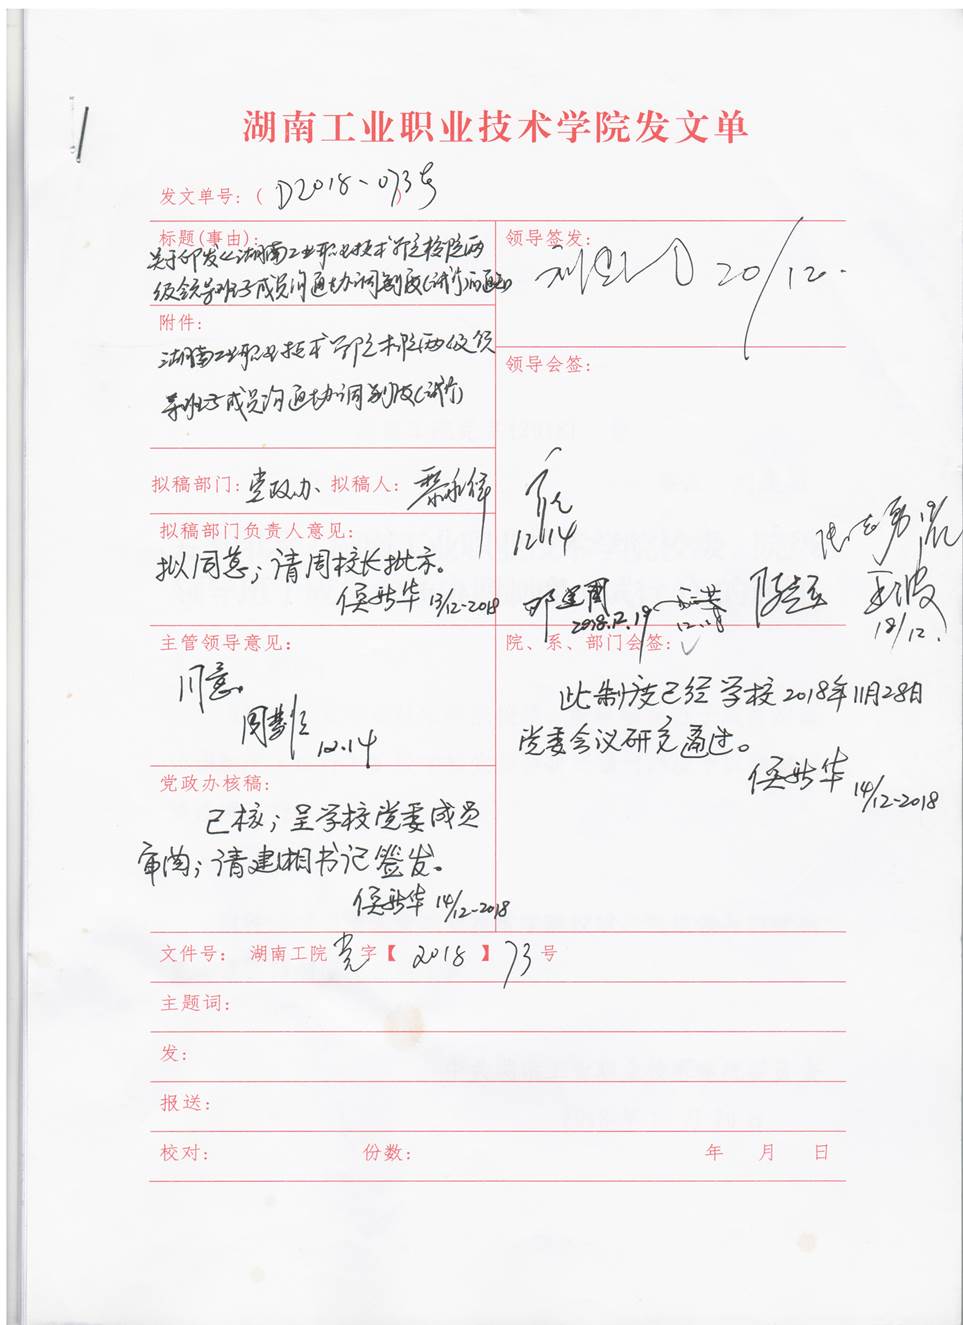 湖南工业职业技术学院发文单
发文单号：( D2018-073号 )
标题(事由)：
关于印发《湖南工业职业技术学院校院两
级领导班子成员沟通协调制度(试行)》的通知
附件：
湖南工业职业技术学院校院两级领
导班子成员沟通协调制度(试行)
拟稿部门：党政办 拟稿人：
拟稿部门负责人意见：
拟同意；请周校长批示。
侯新华 13/12-2018
主管领导意见：
同意。
12.14
党政办核稿：
已核；呈学校党委成员
审阅；请建湘书记签发。
侯新华 14/12-2018
领导签发：
20/12.
领导会签：
12.14
2018.12.19
18/12.
院、系、部门会签：
此制度已经学校2018年11月28日
党委会议研究通过。
侯新华 14/12-2018
文件号： 湖南工院党字【 2018 】73号
主题词：
发：
报送：
校对： 份数： 年 月 日